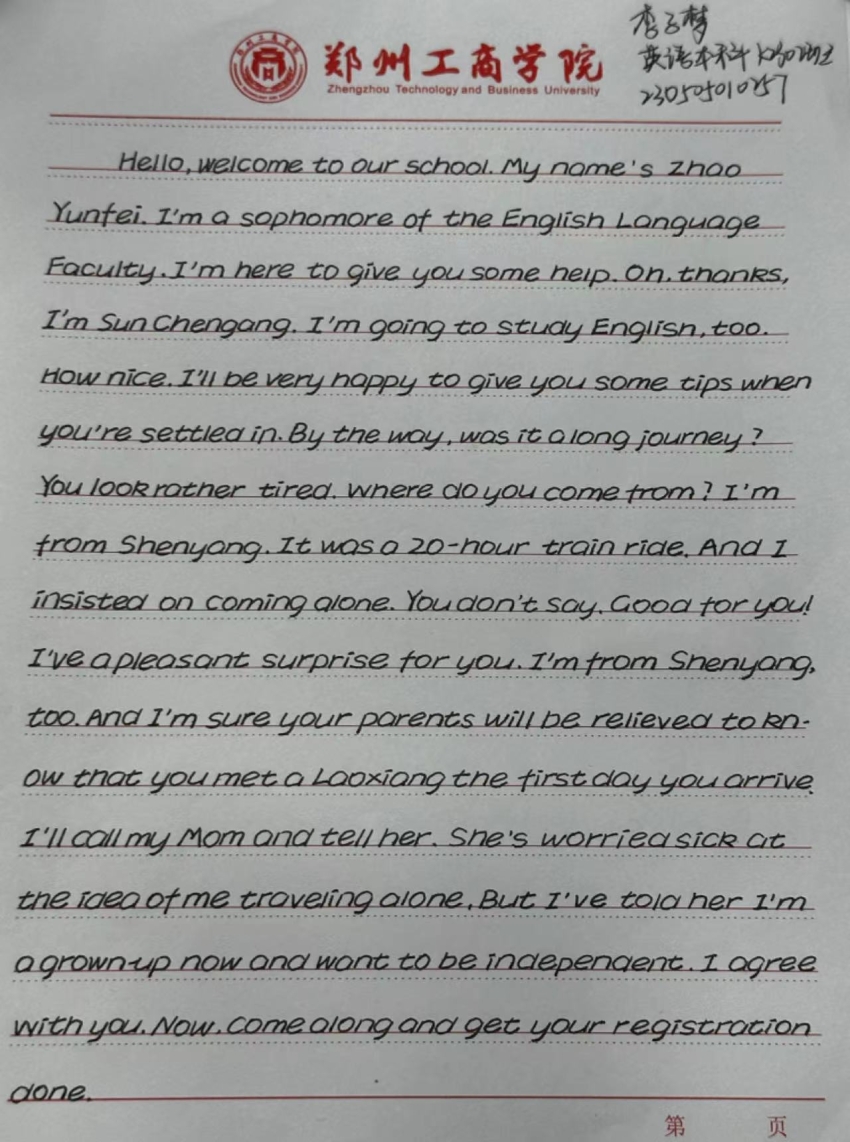 郑州工商学院
Zhengzhou Technology and Business University
李子梦
英语本科
230505010257
Hello, welcome to our school. My name's Zhao
Yunfei. I'm a sophomore of the English Language
Faculty. I'm here to give you some help. Oh, thanks,
I'm Sun Chengang. I'm going to study English, too.
How nice. I'll be very happy to give you some tips when
you're settled in. By the way, was it a long journey?
You look rather tired. Where do you come from? I'm
from Shenyang. It was a 20-hour train ride. And I
insisted on coming alone. You don't say. Good for you!
I've a pleasant surprise for you. I'm from Shenyang,
too. And I'm sure your parents will be relieved to kn-
ow that you met a Laoxiang the first day you arrive.
I'll call my Mom and tell her. She's worried sick at
the idea of me traveling alone. But I've told her I'm
a grown-up now and want to be independent. I agree
with you. Now. come along and get your registration
done.
第 页